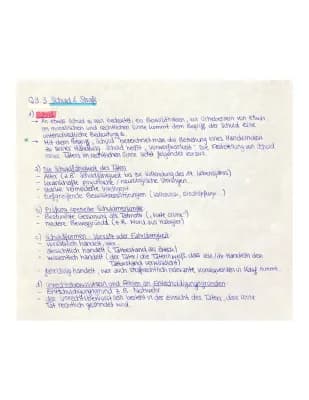 Q3.3 Schuld & Strafe
1) Schuld
→ An etwas Schuld zu sein bedeutet, ein Bewusstsein, der Urheber von etwas
im moralischen und rechtlichen Sinne kommt dem Begriff der Schuld eine
unterschiedliche Bedeutung zu
→ Mit dem Begriff "Schuld" bezeichnet man die Beziehung eines Handelnden
zu seiner Handlung. Schuld heißt "Vorwerfbarkeit". Die Feststellung von Schuld
eines Täters im rechtlichen Sinne setzt folgendes voraus:
a) Die Schuldfähigkeit des Täters
- Alter (z.B. Schuldunfähigkeit bis zur Vollendung des 14. Lebensjahres)
- krankhafte / neurologische Störungen
- starke Intelligenz
- tiefgreifende Bewusstseinsstörungen (Vollrausch, Erschöpfung)
b) Prüfung spezieller Schuldmerkmale
- Bestimmte Gesinnung als Tatmotiv ("hate crime")
- niedere Beweggründe (z.B. Mord aus Habgier)
c) Schuldformen - Vorsatz oder Fahrlässigkeit
- vorsätzlich handelt, wer
- absichtlich handelt (Tatbestand als Zweck)
- wissentlich handelt (der Täter / die Täterin weiß, dass sein / ihr Handeln den
Tatbestand verwirklicht)
- fahrlässig handelt, wer auch strafrechtlich relevante Konsequenzen in Kauf nimmt
d) Unrechtsbewusstsein und Fehlen an Entschuldigungsgründen
- Entschuldigungsgrund z.B. Notwehr
- das Unrechtsbewusstsein besteht in der Einsicht des Täters, dass seine
Tat rechtlich geahndet wird.